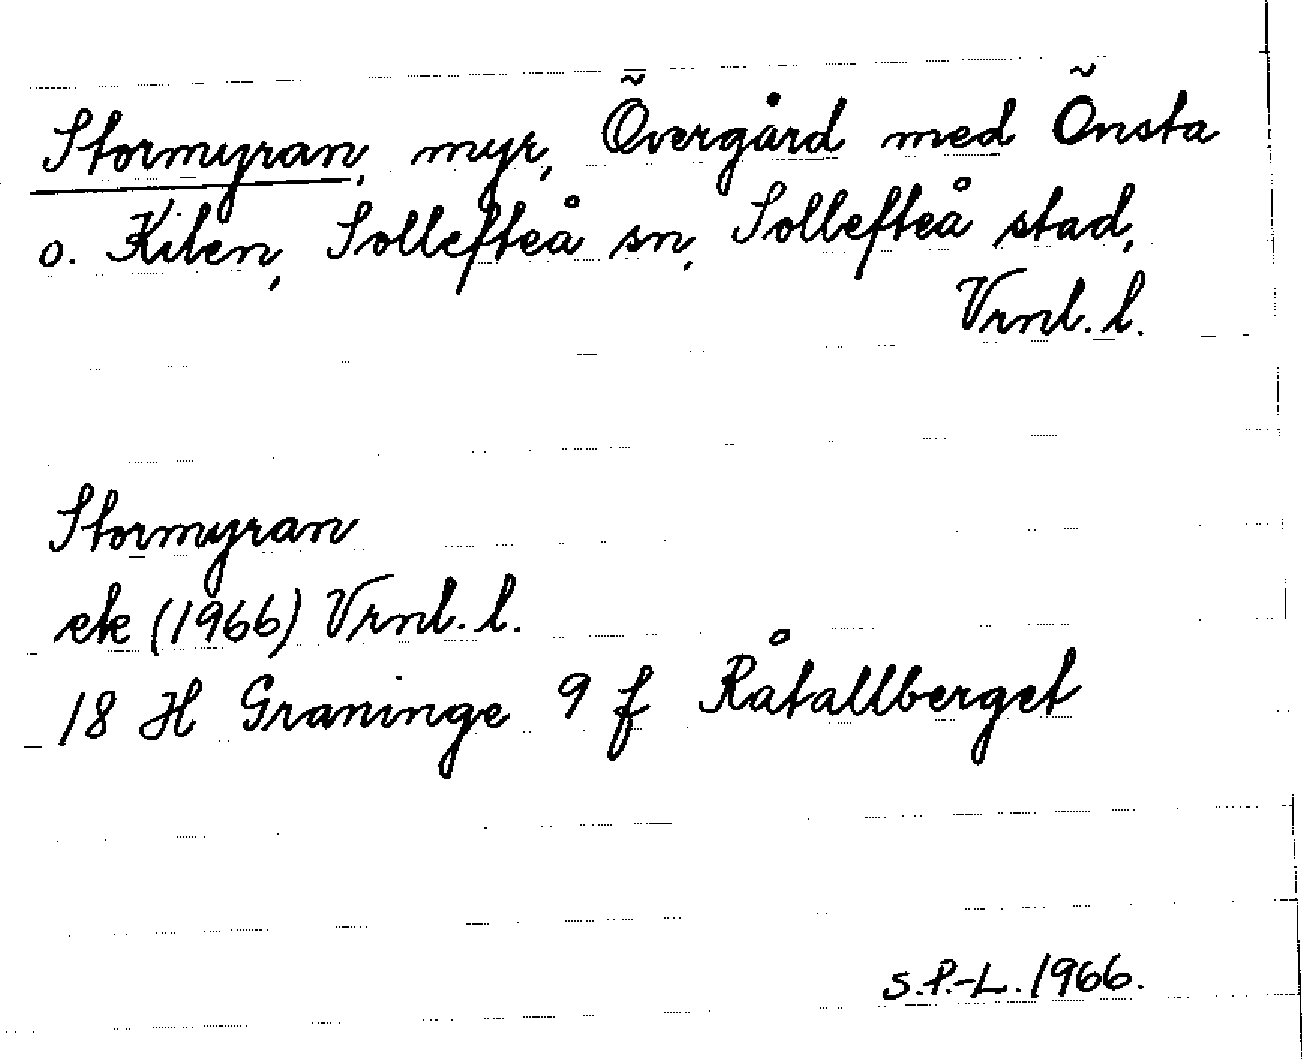 Stormyran, myr, Övergård med Önsta
o. Kilen, Sollefteå sn, Sollefteå stad,
Vrnl. l.
Stormyran
ek (1966) Vrnl. l.
18 H Graninge 9 f Råtallberget
S.P.-L. 1966.